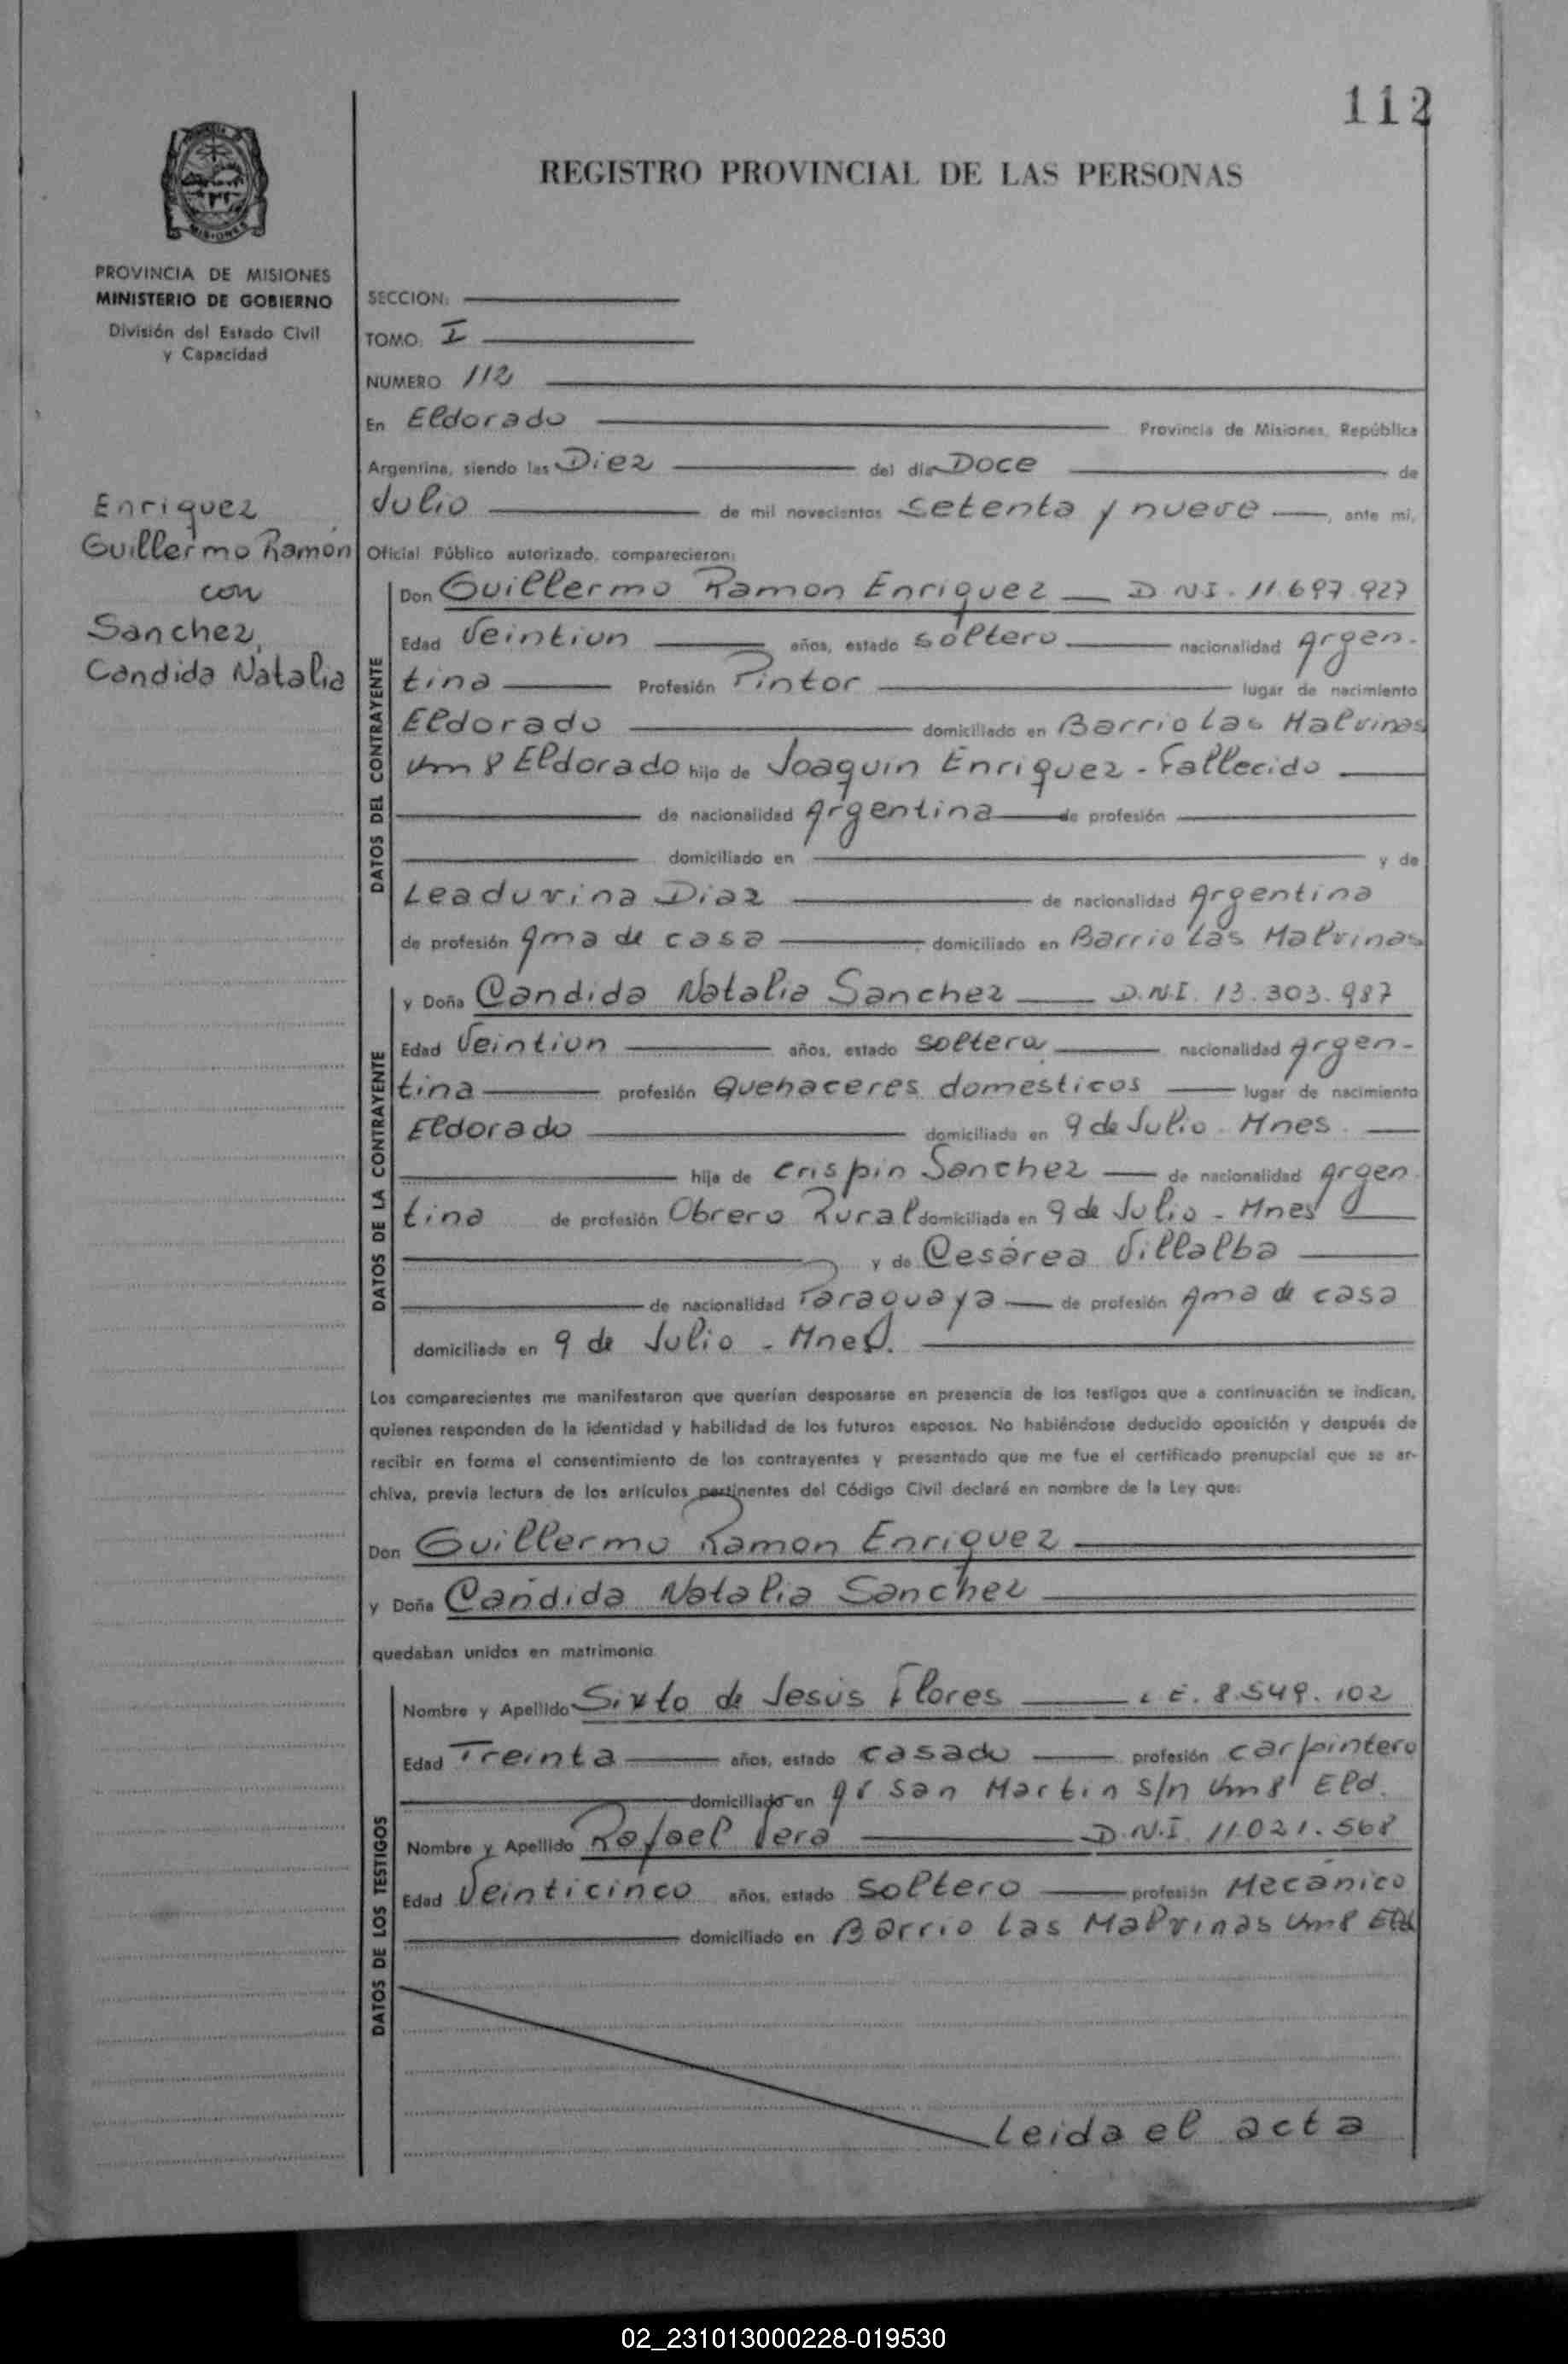 112
REGISTRO PROVINCIAL DE LAS PERSONAS
MISIONES
PROVINCIA DE MISIONES
MINISTERIO DE GOBIERNO
División del Estado Civil
y Capacidad
Enriquez
Guillermo Ramón
con
Sanchez,
Candida Natalia
SECCION:
TOMO: I
NUMERO 112
En Eldorado Provincia de Misiones, República
Argentina, siendo las Diez del día Doce de
Julio de mil novecientos setenta y nueve, ante mí,
Oficial Público autorizado, comparecieron:
DATOS DEL CONTRAYENTE
Don Guillermo Ramon Enriquez D.N.I. 11.697.927
Edad Veintiun años, estado soltero nacionalidad Argen-
tina Profesión Pintor lugar de nacimiento
Eldorado domiciliado en Barrio Las Malvinas
Km 8 Eldorado hijo de Joaquin Enriquez - Fallecido
de nacionalidad Argentina de profesión
domiciliado en y de
Leadurina Diaz de nacionalidad Argentina
de profesión Ama de casa domiciliado en Barrio Las Malvinas
DATOS DE LA CONTRAYENTE
y Doña Candida Natalia Sanchez D.N.I. 13.303.987
Edad Veintiun años, estado soltera nacionalidad Argen-
tina profesión Quehaceres domesticos lugar de nacimiento
Eldorado domiciliada en 9 de Julio - Mnes.
hija de Crispin Sanchez de nacionalidad Argen
tina de profesión Obrero Rural domiciliado en 9 de Julio - Mnes
y de Cesárea Villalba
de nacionalidad Paraguaya de profesión Ama de casa
domiciliada en 9 de Julio - Mnes.
Los comparecientes me manifestaron que querían desposarse en presencia de los testigos que a continuación se indican,
quienes responden de la identidad y habilidad de los futuros esposos. No habiéndose deducido oposición y después de
recibir en forma el consentimiento de los contrayentes y presentado que me fue el certificado prenupcial que se ar-
chiva, previa lectura de los artículos pertinentes del Código Civil declaré en nombre de la Ley que:
Don Guillermo Ramon Enriquez
y Doña Candida Natalia Sanchez
quedaban unidos en matrimonio
DATOS DE LOS TESTIGOS
Nombre y Apellido Sixto de Jesús Flores L.E. 8.549.102
Edad Treinta años, estado casado profesión carpintero
domiciliado en San Martin s/n Km 8 Eld.
Nombre y Apellido Rafael Vera D.N.I. 11.021.568
Edad Veinticinco años, estado soltero profesión Mecánico
domiciliado en Barrio Las Malvinas Km 8 Eld
Leida el acta
02_231013000228-019530